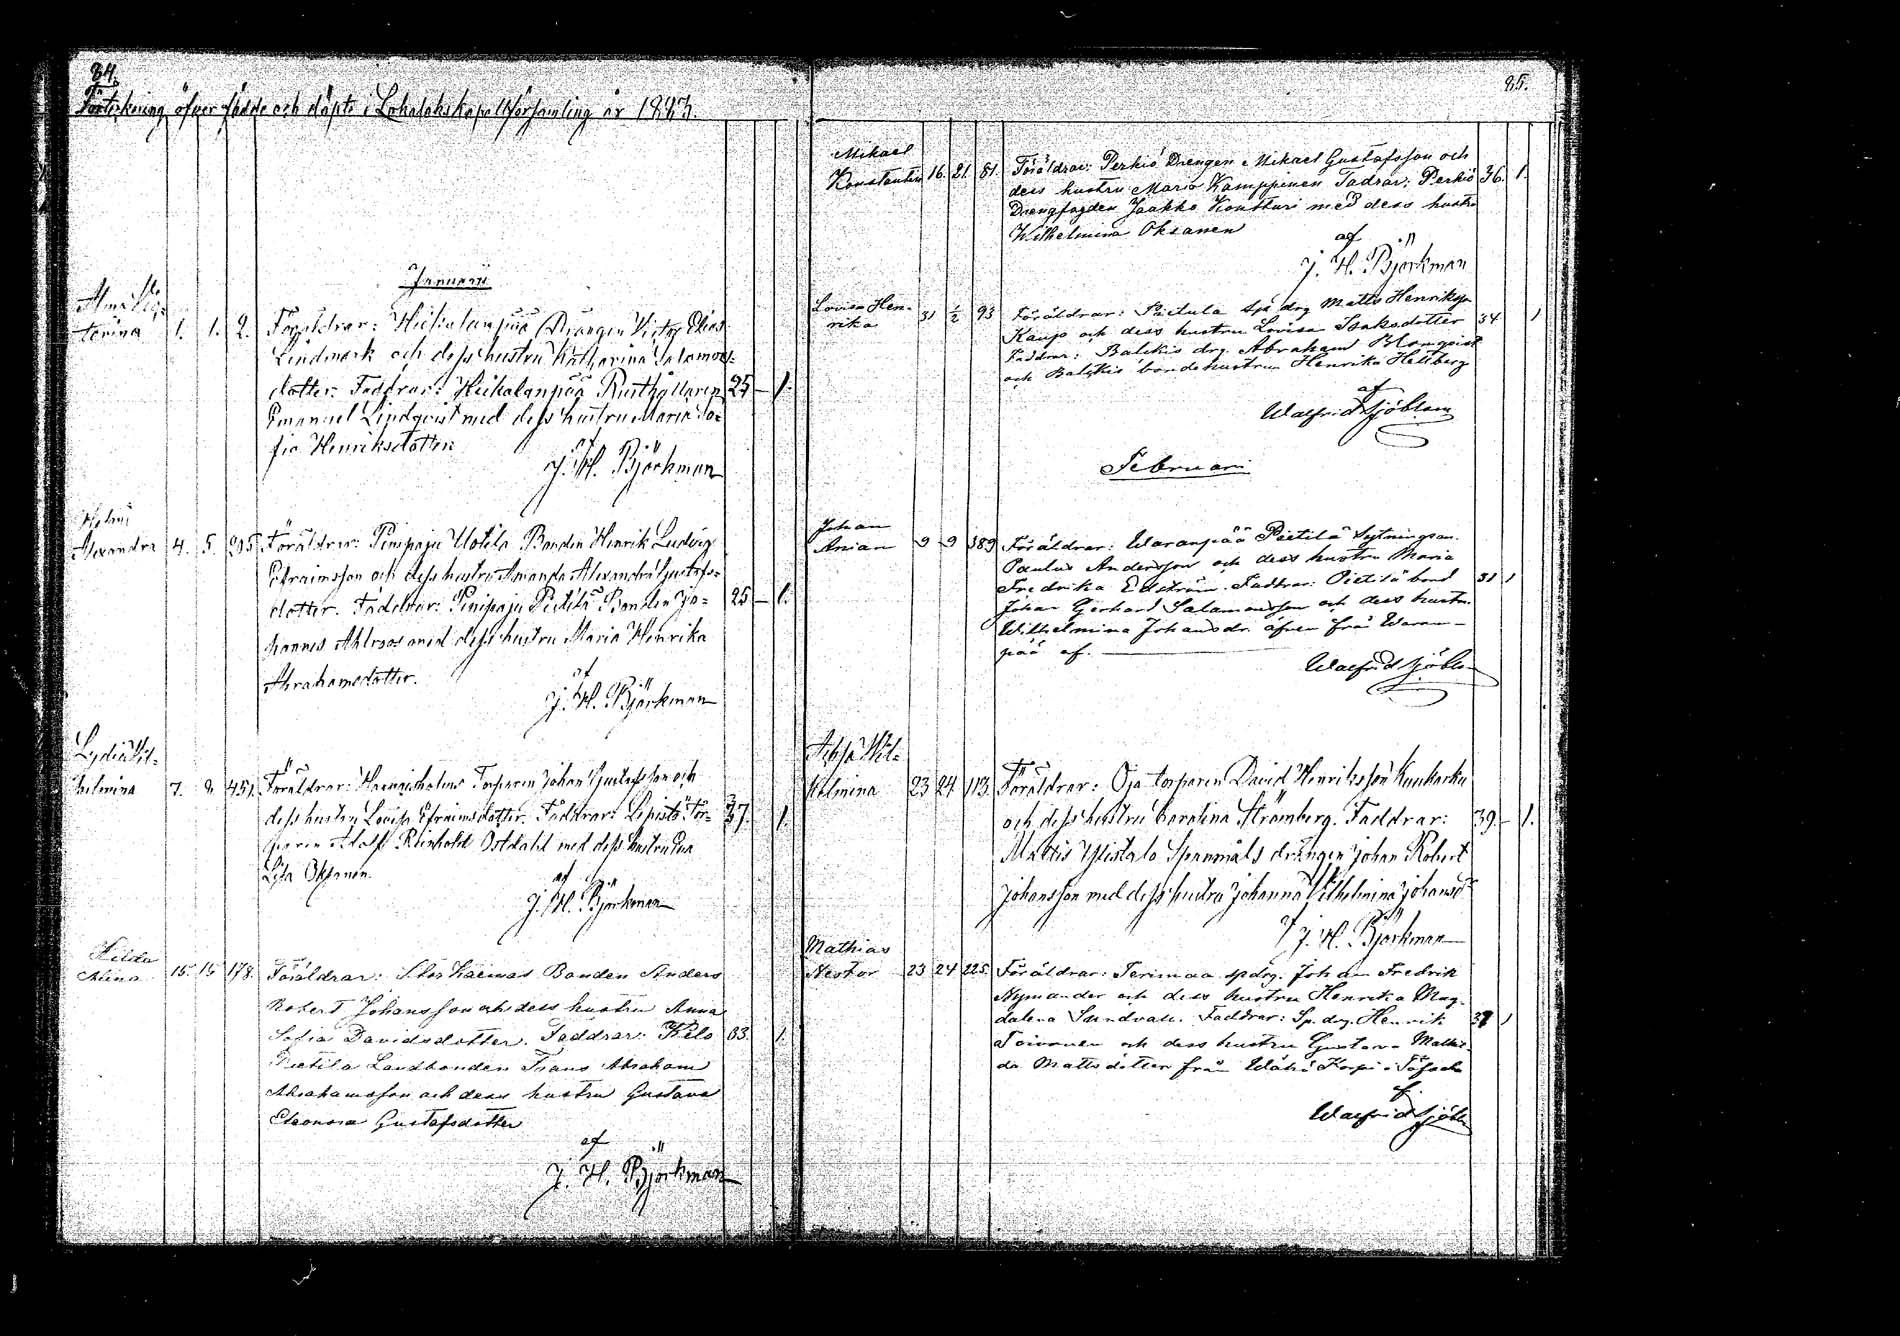 84.
Förteckning öfver födde och döpte i Lokalaks kapellförsamling år 1883.
Januarii
Alma Vic-
torina 1. 1. 2. Föräldrar: Heikolanpää Drängen Victor Elias
Lindmark och dess hustru Katharina Salamons-
dotter. Faddrar: Heikolanpää Rusthållaren 25 — 1.
Emanuel Lindqvist med dess hustru Maria So-
fia Henriksdotter.
af
J. H. Björkman
Alexandra 4. 5. 205. Föräldrar: Pinipaju Uotila Bonden Henrik Ludvig
Efraimsson och dess hustru Amanda Alexandra Gustafs-
dotter. Faddrar: Pinipaju Pietilä Bonden Jo- 25 — 1.
hannes Ahlroos med dess hustru Maria Henrika
Abrahamsdotter.
af
J. H. Björkman
Lydia Vil-
helmina 7. 8. 451. Föräldrar: Torparen Johan Gustafsson och
dess hustru Lovisa Efraimsdotter. Faddrar: Lepistö Tor- 37. 1.
paren Adolf Reinhold Östdahl med dess hustru Eva
Lisa Oksanen.
af
J. H. Björkman
Hilda
Alina 15. 15 178. Föräldrar: Stor Kaemas Bonden Anders
Robert Johansson och dess hustru Anna
Sofia Davidsdotter. Faddrar: Kilo 33. 1.
Pietilä Landbonden Frans Abraham
Abrahamsson och dess hustru Gustava
Eleonora Gustafsdotter
af
J. H. Björkman
85.
Mikael
Konstantin 16. 21. 81. Föräldrar: Perkiö Drengen Mikael Gustafsson och
dess hustru Maria Kamppinen Fadrar: Perkiö 36. 1.
Drengfogden Jaakko Kontturi med dess hustru
Wilhelmina Oksanen
af
J. H. Björkman
Lovisa Hen-
rika 31 ½ 93 Föräldrar: Pietula drg Matts Henriksson
Kaup och dess hustru Lovisa Isaksdotter 34 1
Faddrar: Balckis drg. Abraham Blomqvist
och Balckis bondehustrun Henrika Hellberg
af
Walfrid Sjöblom
Februari
Johan
Anian 9 9 389 Föräldrar: Waranpää Pietilä Sytningsm.
Paulus Andersson och dess hustru Maria
Fredrika Edström. Faddrar: Pietilä bond 31 1
Johan Gerhard Salamonsson och dess hustru
Wilhelmina Johansdr. äfven från Waran-
pää af.
Walfrid Sjöblom
Vil-
helmina 23 24 113. Föräldrar: Oja torparen David Henriksson Kuukarka
och dess hustru Carolina Strömberg. Faddrar: 39. — 1.
Mattis Ylistalo Spannmåls drängen Johan Robert
Johansson med dess hustru Johanna Vilhelmina Johansdr
af
J. H. Björkman
Mathias
Nestor 23 24 225. Föräldrar: Terimaa sp.drg. Johan Fredrik
Nymander och dess hustru Henrika Mag-
dalena Sundvall. Faddrar: Sp. drg. Henrik 37 1
Toivonen och dess hustru Gustava Mathil-
da Mattsdotter från Wähä Korpi i Töfsala
af
Walfrid Sjöblom